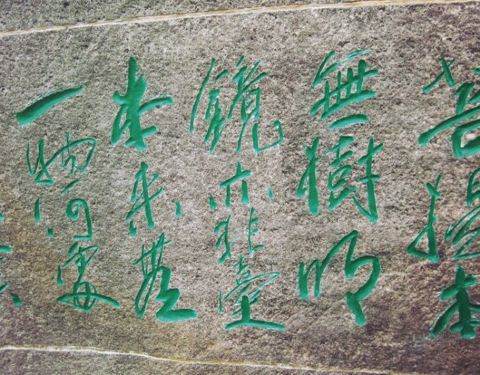 菩提本
無樹明
鏡亦非臺
本来無
一物何處